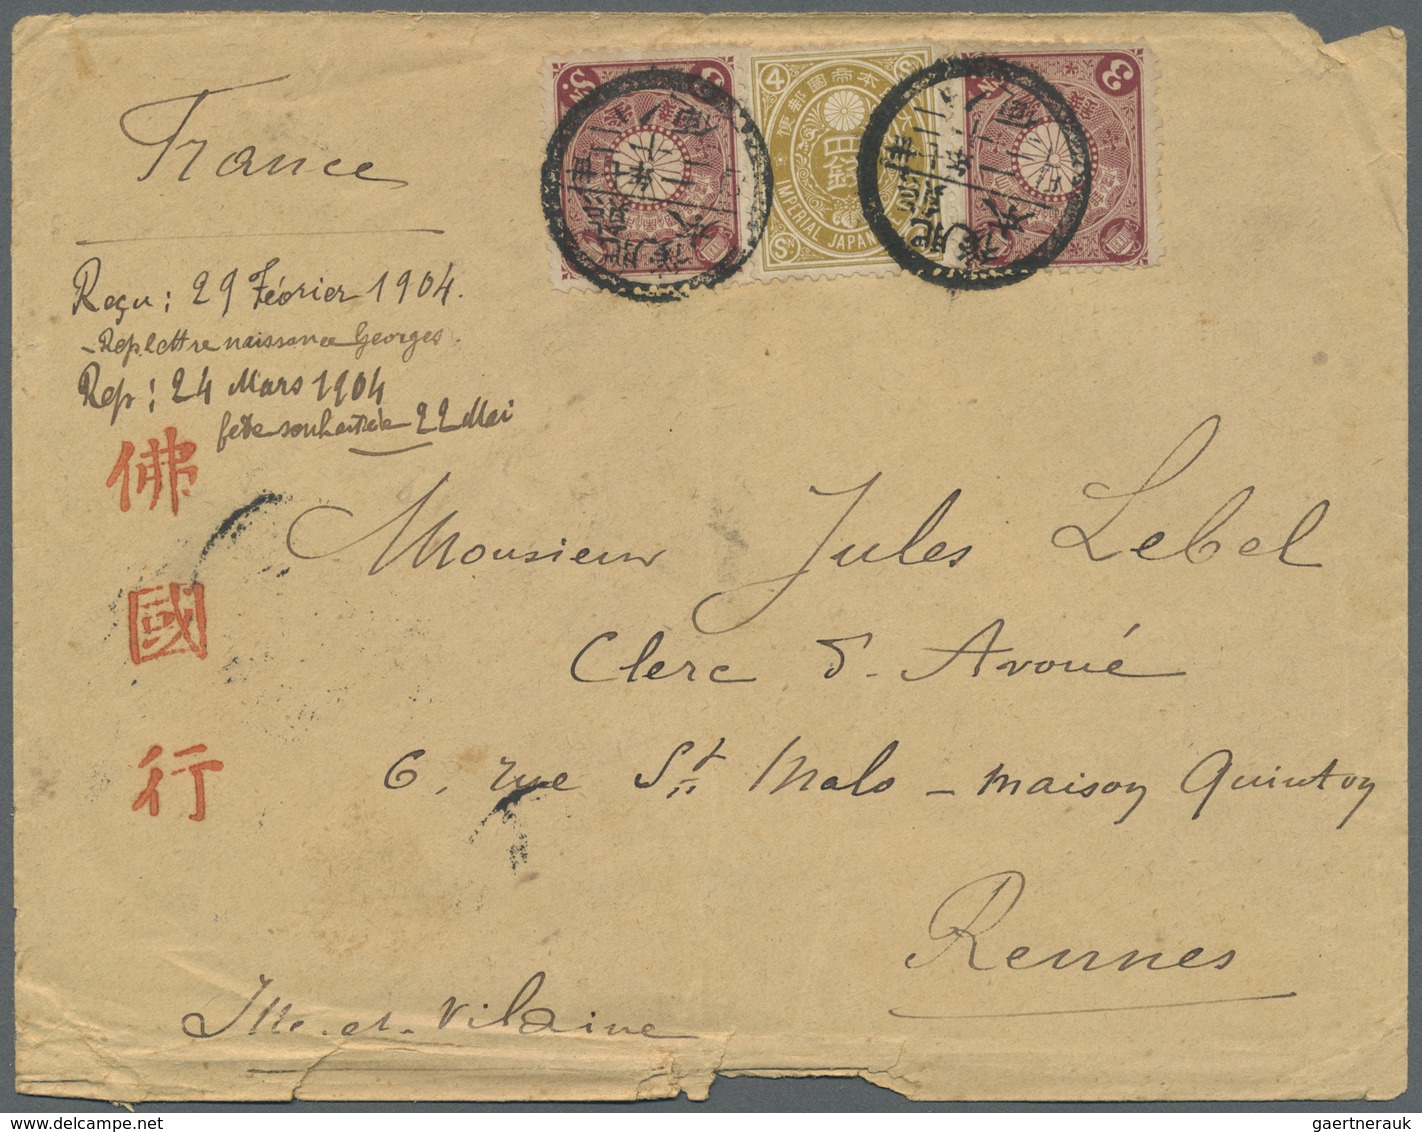 France
Reçu : 29 Février 1904.
- Rep lettre naissance Georges.
Rep : 24 Mars 1904
fête souhaitée 22 Mai
佛
國
行
Monsieur Jules Lebel
Clerc d'Avoué
6, rue St Malo - maison Quintoy
Rennes
Ille-et-Vilaine
3
Sn
4
大日本帝國郵便
四錢
IMPERIAL JAPAN
Sn
3
肥後
gaertnerauk